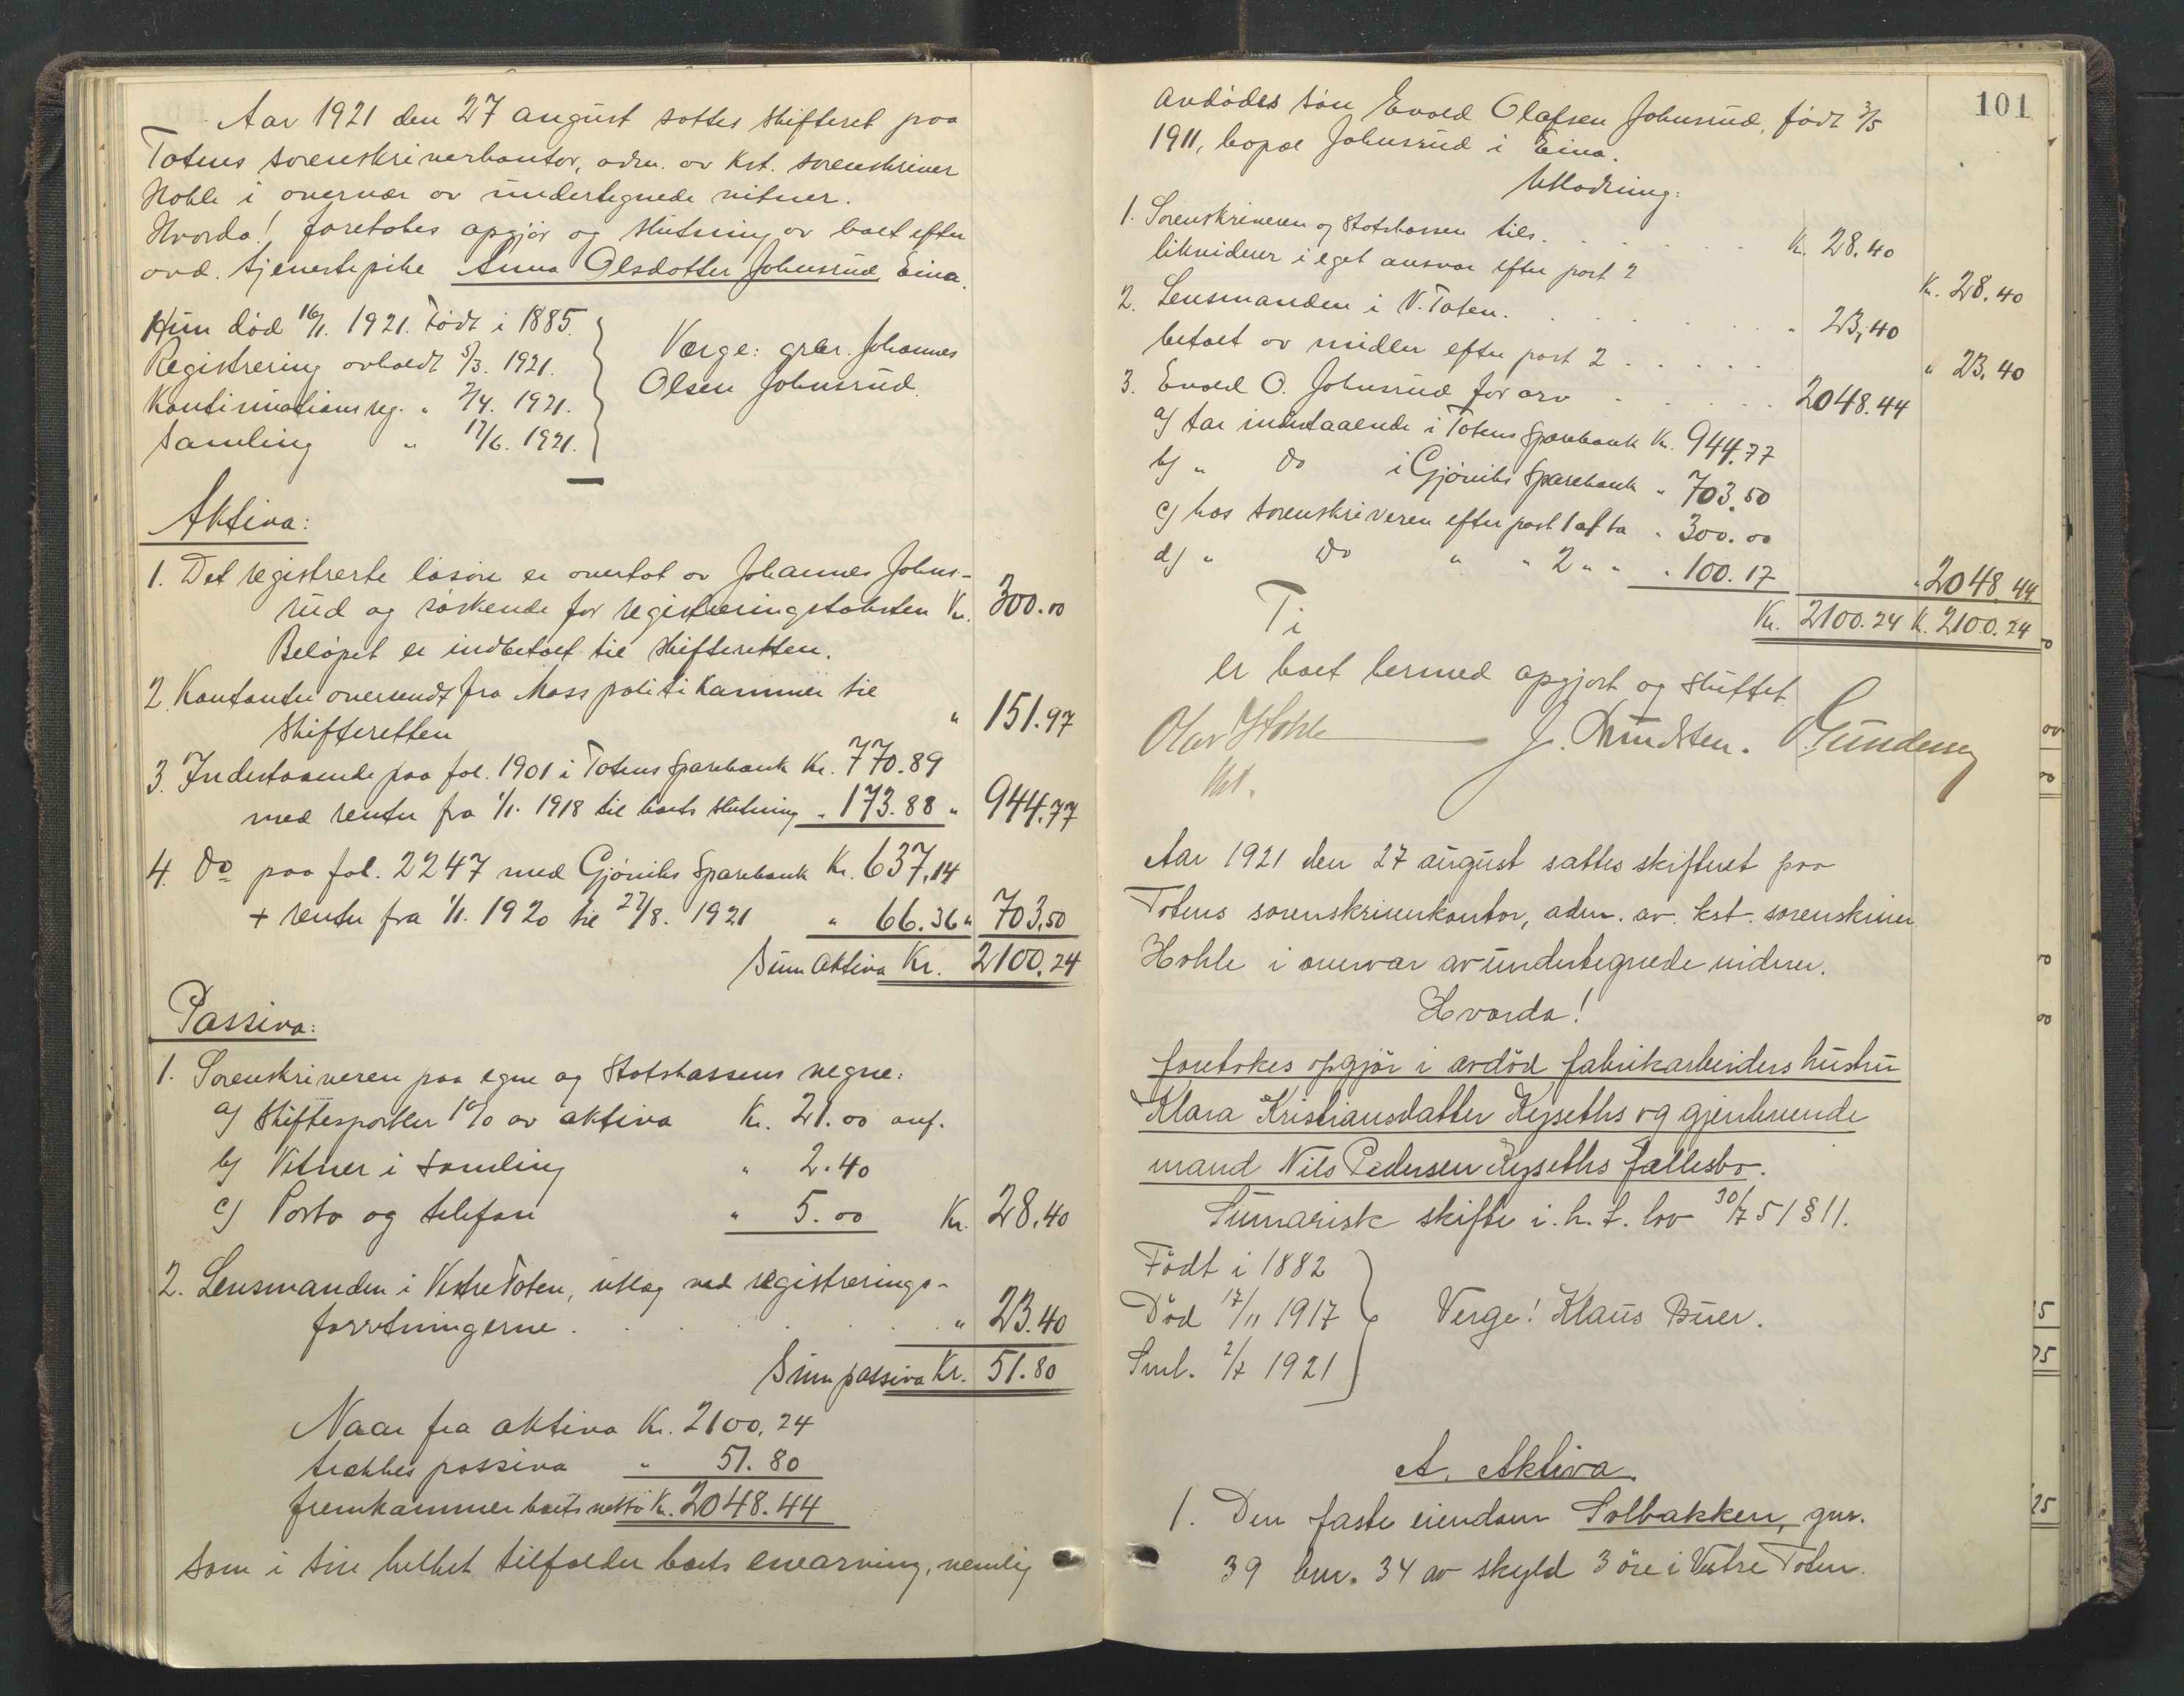 Aar 1921 den 27 august sattes skifteret paa
Totens sorenskriverkontor, adm. av kst. sorenskriver
Hohle i overvær av undertegnede vitner.
Hvorda! foretokes opgjør og slutning av boet efter
avd. tjenestepike Anna Olsdatter Johnsrud, Eina.
Hun død 16/1. 1921. Født i 1885.
Registrering avholdt 5/3. 1921.
Kontinuationsreg. " 2/4. 1921.
Samling " 17/6. 1921.
Værge: grbr. Johannes
Olsen Johnsrud.
Aktiva:
1. Det registrerte løsøre er overtat av Johannes Johns-
rud og søskende for registreringstaksten Kr. 300.00
Beløpet er indbetalt til skifteretten.
2. Kontanter oversendt fra Moss politikammer til
skifteretten " 151.97
3. Indestaaende paa fol. 1901 i Totens Sparebank Kr. 770.89
med renter fra 1/1. 1918 til boets slutning " 173.88 " 944.77
4. do paa fol. 2247 med Gjøviks Sparebank Kr. 637,14
+ renter fra 1/1. 1920 til 27/8. 1921 " 66.36 " 703,50
Sum aktiva Kr. 2100,24
Passiva:
1. Sorenskriveren paa egne og Statskassens vegne:
a) Skiftesportler 1% av aktiva Kr. 21.00 anf.
b) Vitner i samling " 2.40
c) Porto og telefon " 5.00 Kr. 28,40
2. Lensmanden i Vestre Toten, utlæg ved registrerings-
forretningerne . . . . . " 23.40
Sum passiva Kr. 51.80
Naar fra aktiva Kr. 2100,24
trækkes passiva " 51.80
fremkommer boets netto Kr. 2048.44
som i sin helhet tilfalder boets enearving, nemlig
101
avdødes søn Evald Olafsen Johnsrud, født 3/5
1911, bopæl Johnsrud i Eina.
Utlodning:
1. Sorenskriveren og Statskassen tils. . . . . . Kr. 28.40
likviderer i eget ansvar efter post 2 Kr. 28.40
2. Lensmanden i V. Toten. . . . . . " 23,40
betalt av midler efter post 2 . . . . . " 23.40
3. Evald O. Johnsrud for arv . . . . . 2048.44
a) tar indestaaende i Totens Sparebank Kr. 944.77
b) " do i Gjøviks Sparebank " 703.50
c) hos sorenskriveren efter post 1 af ta " 300.00
d) " do " " 2 " " " 100.17 " 2048.44
Kr. 2100.24 Kr. 2100.24
Ti
er boet hermed opgjort og sluttet.
Olav Hohle J. Knudsten. Gundersen
kst.
Aar 1921 den 27 august sattes skifteret paa
Totens sorenskriverkontor, adm. av kst. sorenskriver
Hohle i overvær av undertegnede vidner.
Hvorda!
foretokes opgjør i avdød fabrikarbeiders hustru
Klara Kristiansdatter Kyseths og gjenlevende
mand Nils Pedersen Kyseths fællesbo.
Sumarisk skifte i. h. t. lov 30/7 51 § 11.
Født i 1882
Død 17/11 1917
Saml. 2/7 1921
Verge! Klaus Buer.
A. Aktiva.
1. Den faste eiendom Solbakken, gnr.
39 bnr. 34 av skyld 3 øre i Vestre Toten.